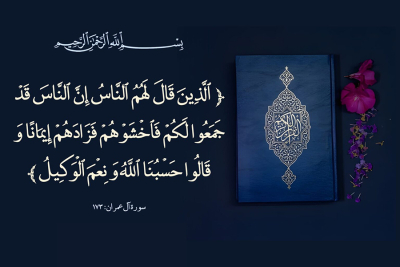 بِسْمِ ٱللَّهِ ٱلرَّحْمَٰنِ ٱلرَّحِيمِ
﴿ ٱلَّذِينَ قَالَ لَهُمُ ٱلنَّاسُ إِنَّ ٱلنَّاسَ قَدْ
جَمَعُوا لَكُمْ فَٱخْشَوْهُمْ فَزَادَهُمْ إِيمَانًا وَ
قَالُوا حَسْبُنَا ٱللَّهُ وَ نِعْمَ ٱلْوَكِيلُ ﴾
سورة آل عمران: ١٧٣
القرآن الكريم